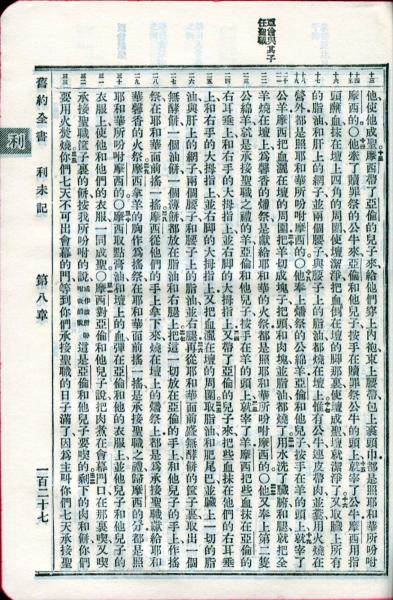 亞倫與其子
任聖職
他使他成聖摩西帶了亞倫的兒子來給他們穿上內袍束上腰帶包上裹頭巾都是照耶和華所吩咐
摩西的〇牽了贖罪祭的公牛來亞倫和他兒子按手在贖罪祭公牛的頭上就宰了公牛摩西用指
頭蘸血抹在壇上四角的周圍使壇潔淨把血倒在壇的脚那裏使壇成聖壇就潔淨了又取臟上所有
的脂油和肝上的網子並兩個腰子與腰子上的脂油都燒在壇上惟有公牛連皮帶肉並糞用火燒在
營外都是照耶和華所吩咐摩西的〇他奉上燔祭的公綿羊亞倫和他兒子按手在羊的頭上就宰了
公羊摩西把血灑在壇的周圍把羊切成塊子把頭和肉塊並脂油都燒了用水洗了臟腑和腿就把全
羊燒在壇上爲馨香的燔祭是獻給耶和華的火祭都是照耶和華所吩咐摩西的〇他又奉上第二隻
公綿羊就是承接聖職之禮的羊亞倫和他兒子按手在羊的頭上就宰了羊摩西把些血抹在亞倫的
右耳垂上和右手的大拇指上並右脚的大拇指上又帶了亞倫的兒子來把些血抹在他們的右耳垂
上和右手的大拇指上並右脚的大拇指上又把血灑在壇的周圍取脂油和肥尾巴並臟上一切的脂
油與肝上的網子兩個腰子和腰子上的脂油並右腿再從耶和華面前盛無酵餅的筐子裏取出一個
無酵餅一個油餅一個薄餅都放在脂油和右腿上把這一切放在亞倫的手上和他兒子的手上作搖
祭在耶和華面前搖一搖摩西從他們的手上拿下來燒在壇上的燔祭上都是爲承接聖職獻給耶和
華馨香的火祭摩西拿羊的胸作爲搖祭在耶和華面前搖一搖是承接聖職之禮歸摩西的分都是照
耶和華所吩咐摩西的〇摩西取點膏油和壇上的血彈在亞倫和他的衣服上並他兒子和他兒子的
衣服上使他和他們的衣服一同成聖〇摩西對亞倫和他兒子說把肉煮在會幕門口在那裏喫又喫
承接聖職筐子裏的餅按我所吩咐的說這是亞倫和他兒子要喫的剩下的肉和餅你們
要用火焚燒你們七天不可出會幕的門等到你們承接聖職的日子滿了因爲主叫你們七天承接聖
舊約全書 利未記 第八章 一百二十七
利